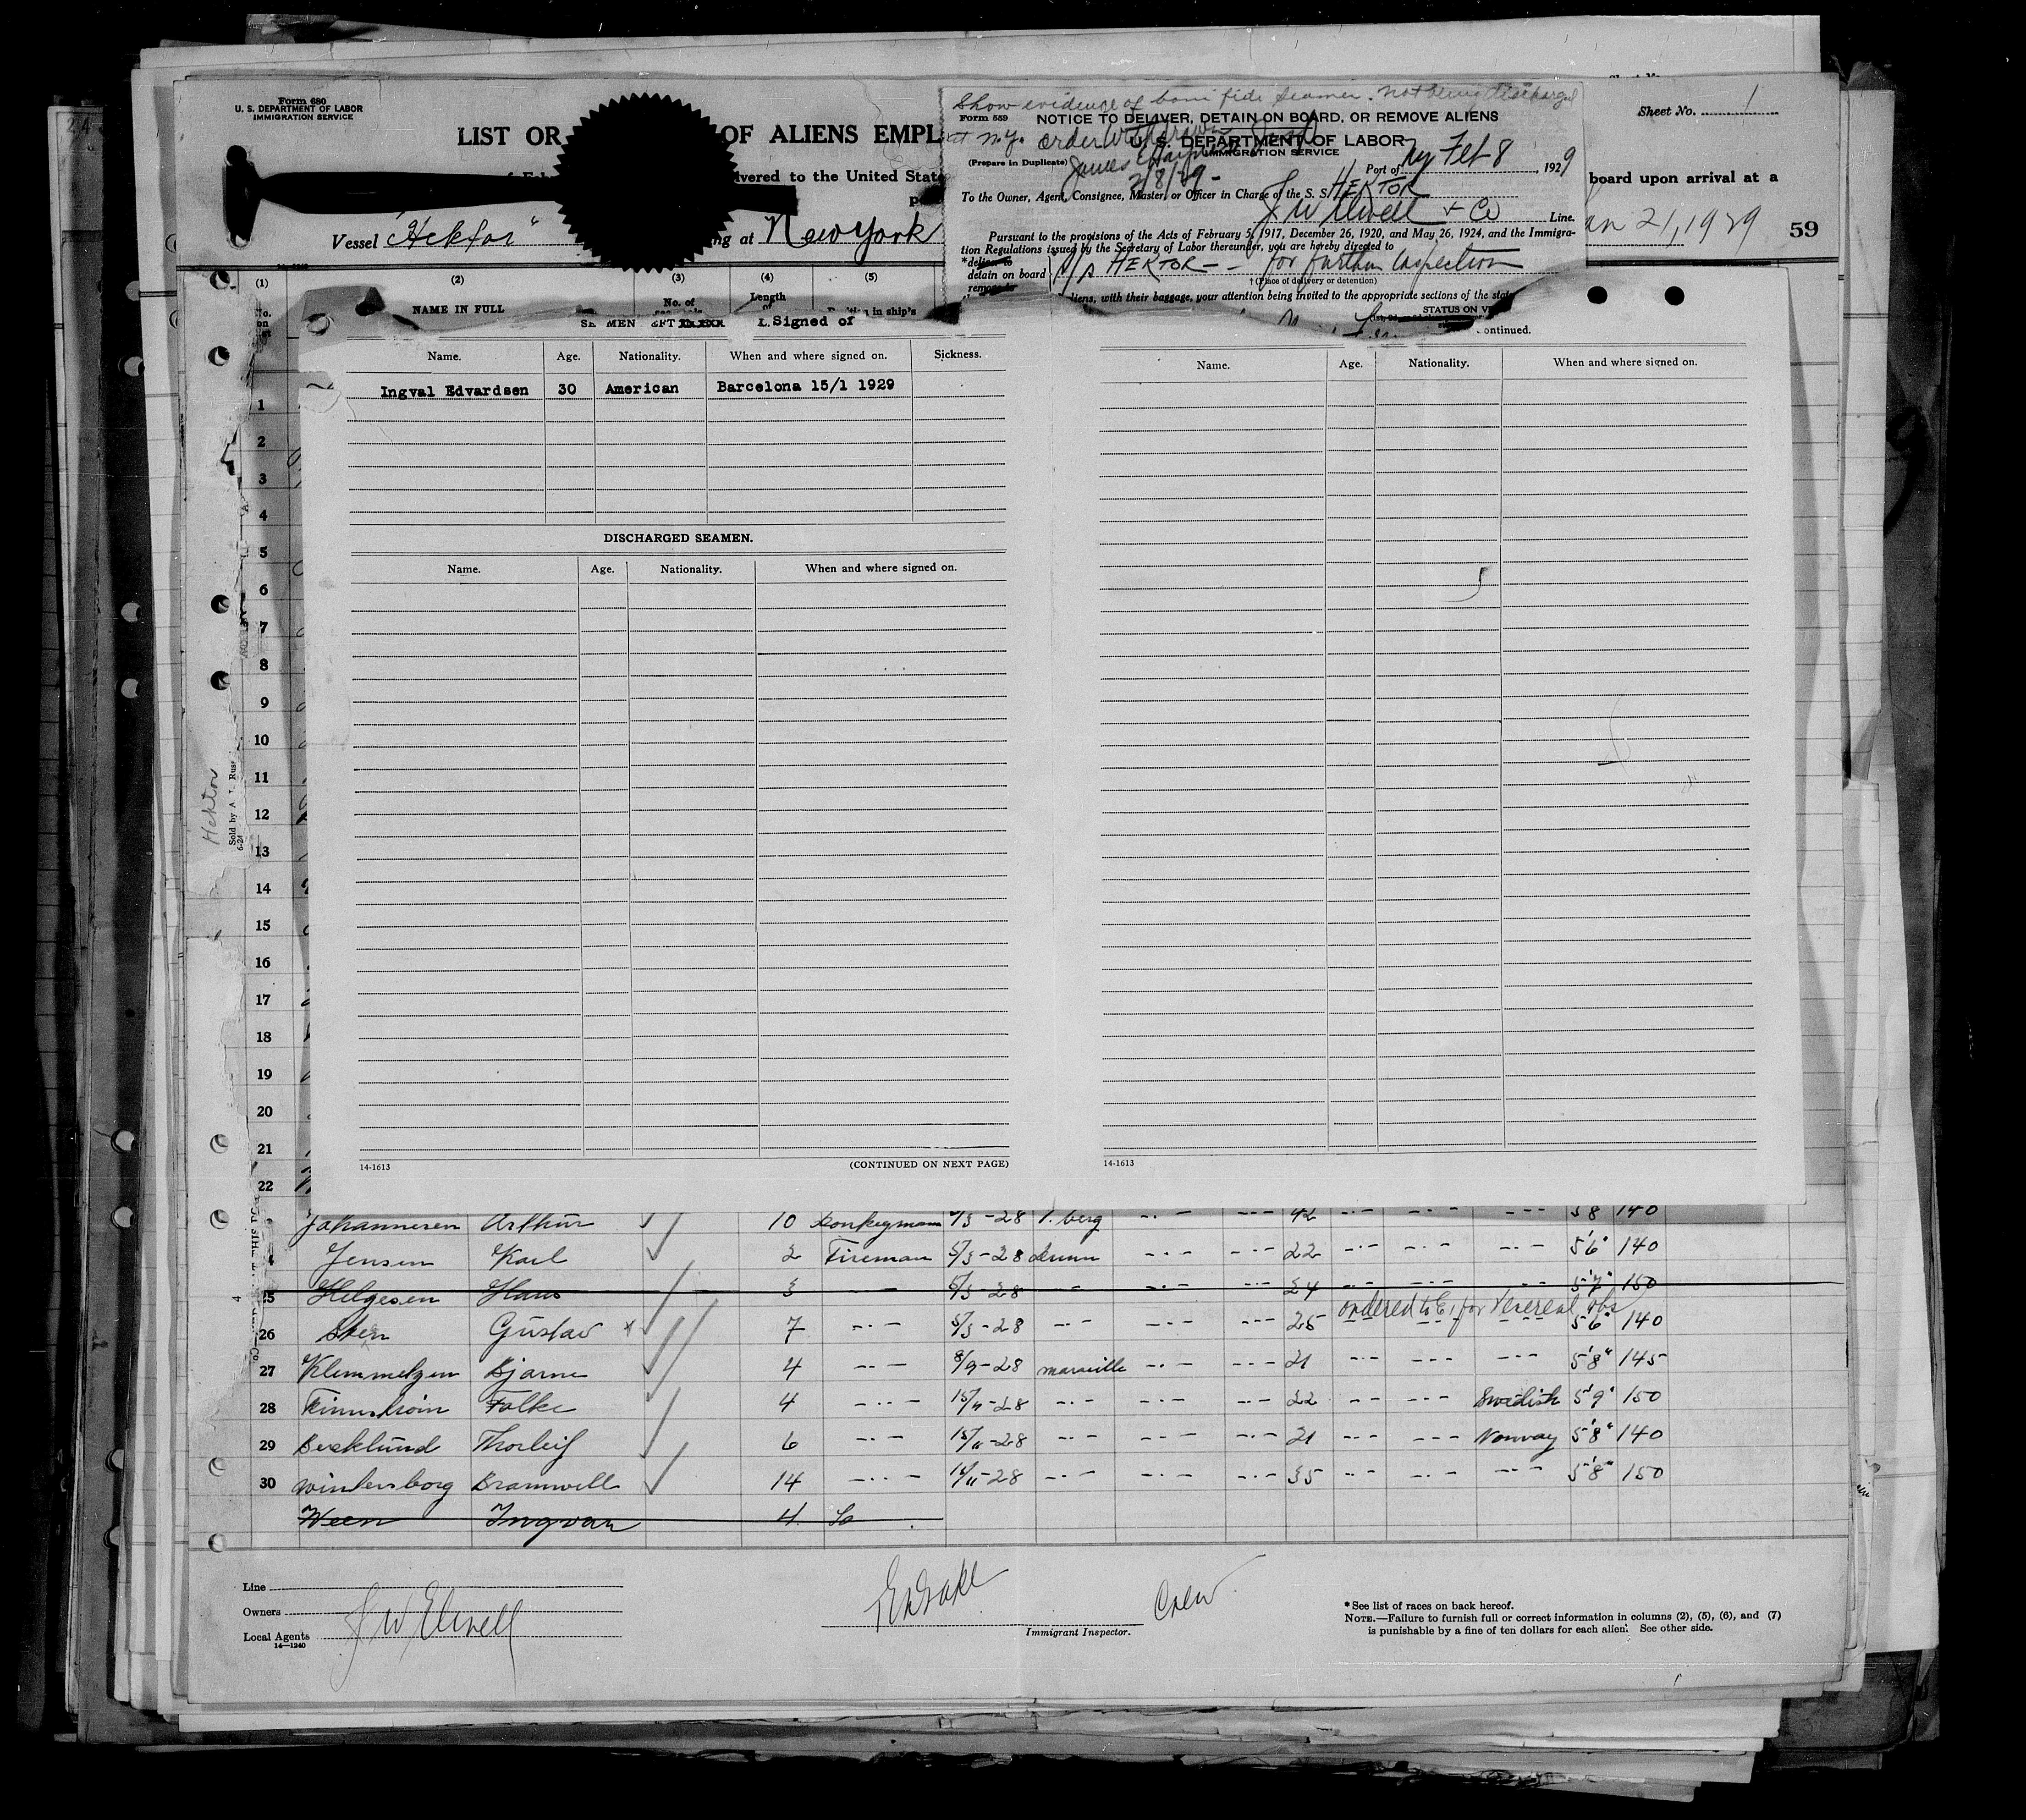 Form 680
U. S. DEPARTMENT OF LABOR
IMMIGRATION SERVICE
LIST OR OF ALIENS EMPL
vered to the United State
Vessel "Hektor" ng at New York
Show evidence of bona fide seamen. Not being discharged
at N.Y. order withdrawn
Form 559
NOTICE TO DELIVER, DETAIN ON BOARD, OR REMOVE ALIENS
U. S. DEPARTMENT OF LABOR
IMMIGRATION SERVICE
(Prepare in Duplicate)
James
2/8/29-
Port of NY Feb 8, 1929
To the Owner, Agent, Consignee, Master, or Officer in Charge of the S. S. HEKTOR
J W Elwell & Co Line.
Pursuant to the provisions of the Acts of February 5, 1917, December 26, 1920, and May 26, 1924, and the Immigra-
tion Regulations issued by the Secretary of Labor thereunder, you are hereby directed to
*deliver to
detain on board S/S HEKTOR - - for further Inspection
remove to
† (Place of delivery or detention)
liens, with their baggage, your attention being invited to the appropriate sections of the stat
Sheet No. 1
board upon arrival at a
an 21, 1929
59
(1) (2) (3) (4) (5)
NAME IN FULL No. of Length of in ship's
STATUS ON V
ontinued.
SEAMEN Signed of
Name. Age. Nationality. When and where signed on. Sickness.
Ingval Edvardsen 30 American Barcelona 15/1 1929
DISCHARGED SEAMEN.
Name. Age. Nationality. When and where signed on.
14-1613 (CONTINUED ON NEXT PAGE)
Name. Age. Nationality. When and where signed on.
14-1613
1
2
3
4
5
6
7
8
9
10
11
12
13
14
15
16
17
18
19
20
21
22
Hektor
Sold by A. Rus
6-24
Johannesen Arthur 10 Donkeyman 5/3-28 T. berg -·- -·- 42 -·- -·- -·- 5'8 140
4 Jensen Karl 2 Fireman 5/3-28 -·- -·- 22 -·- -·- -·- 5'6" 140
25 Helgesen Hans 3 -·- 5/3-28 -·- -·- -·- 24 -·- -·- -·- 5'7" 150
ordered to E.I. for Venereal obs
26 Sten Gustav x 7 -·- 5/3-28 -·- -·- -·- 25 -·- -·- -·- 5'6" 140
27 Klemmetzen Bjarne 4 -·- 8/9-28 marseille -·- -·- 21 -·- -·- -·- 5'8" 145
28 Folke 4 -·- 15/11-28 -·- -·- -·- 22 -·- -·- Swedish 5'9" 150
29 Becklund Thorleif 6 -·- 15/11-28 -·- -·- -·- 21 -·- -·- Norway 5'8" 140
30 Wintersborg Bramwell 14 -·- 16/11-28 -·- -·- -·- 35 -·- -·- -·- 5'8" 150
Ween Ingvar 4 So
Line
Owners J W Elwell
Local Agents
14-1240
Crew
Immigrant Inspector.
* See list of races on back hereof.
NOTE.—Failure to furnish full or correct information in columns (2), (5), (6), and (7)
is punishable by a fine of ten dollars for each alien. See other side.